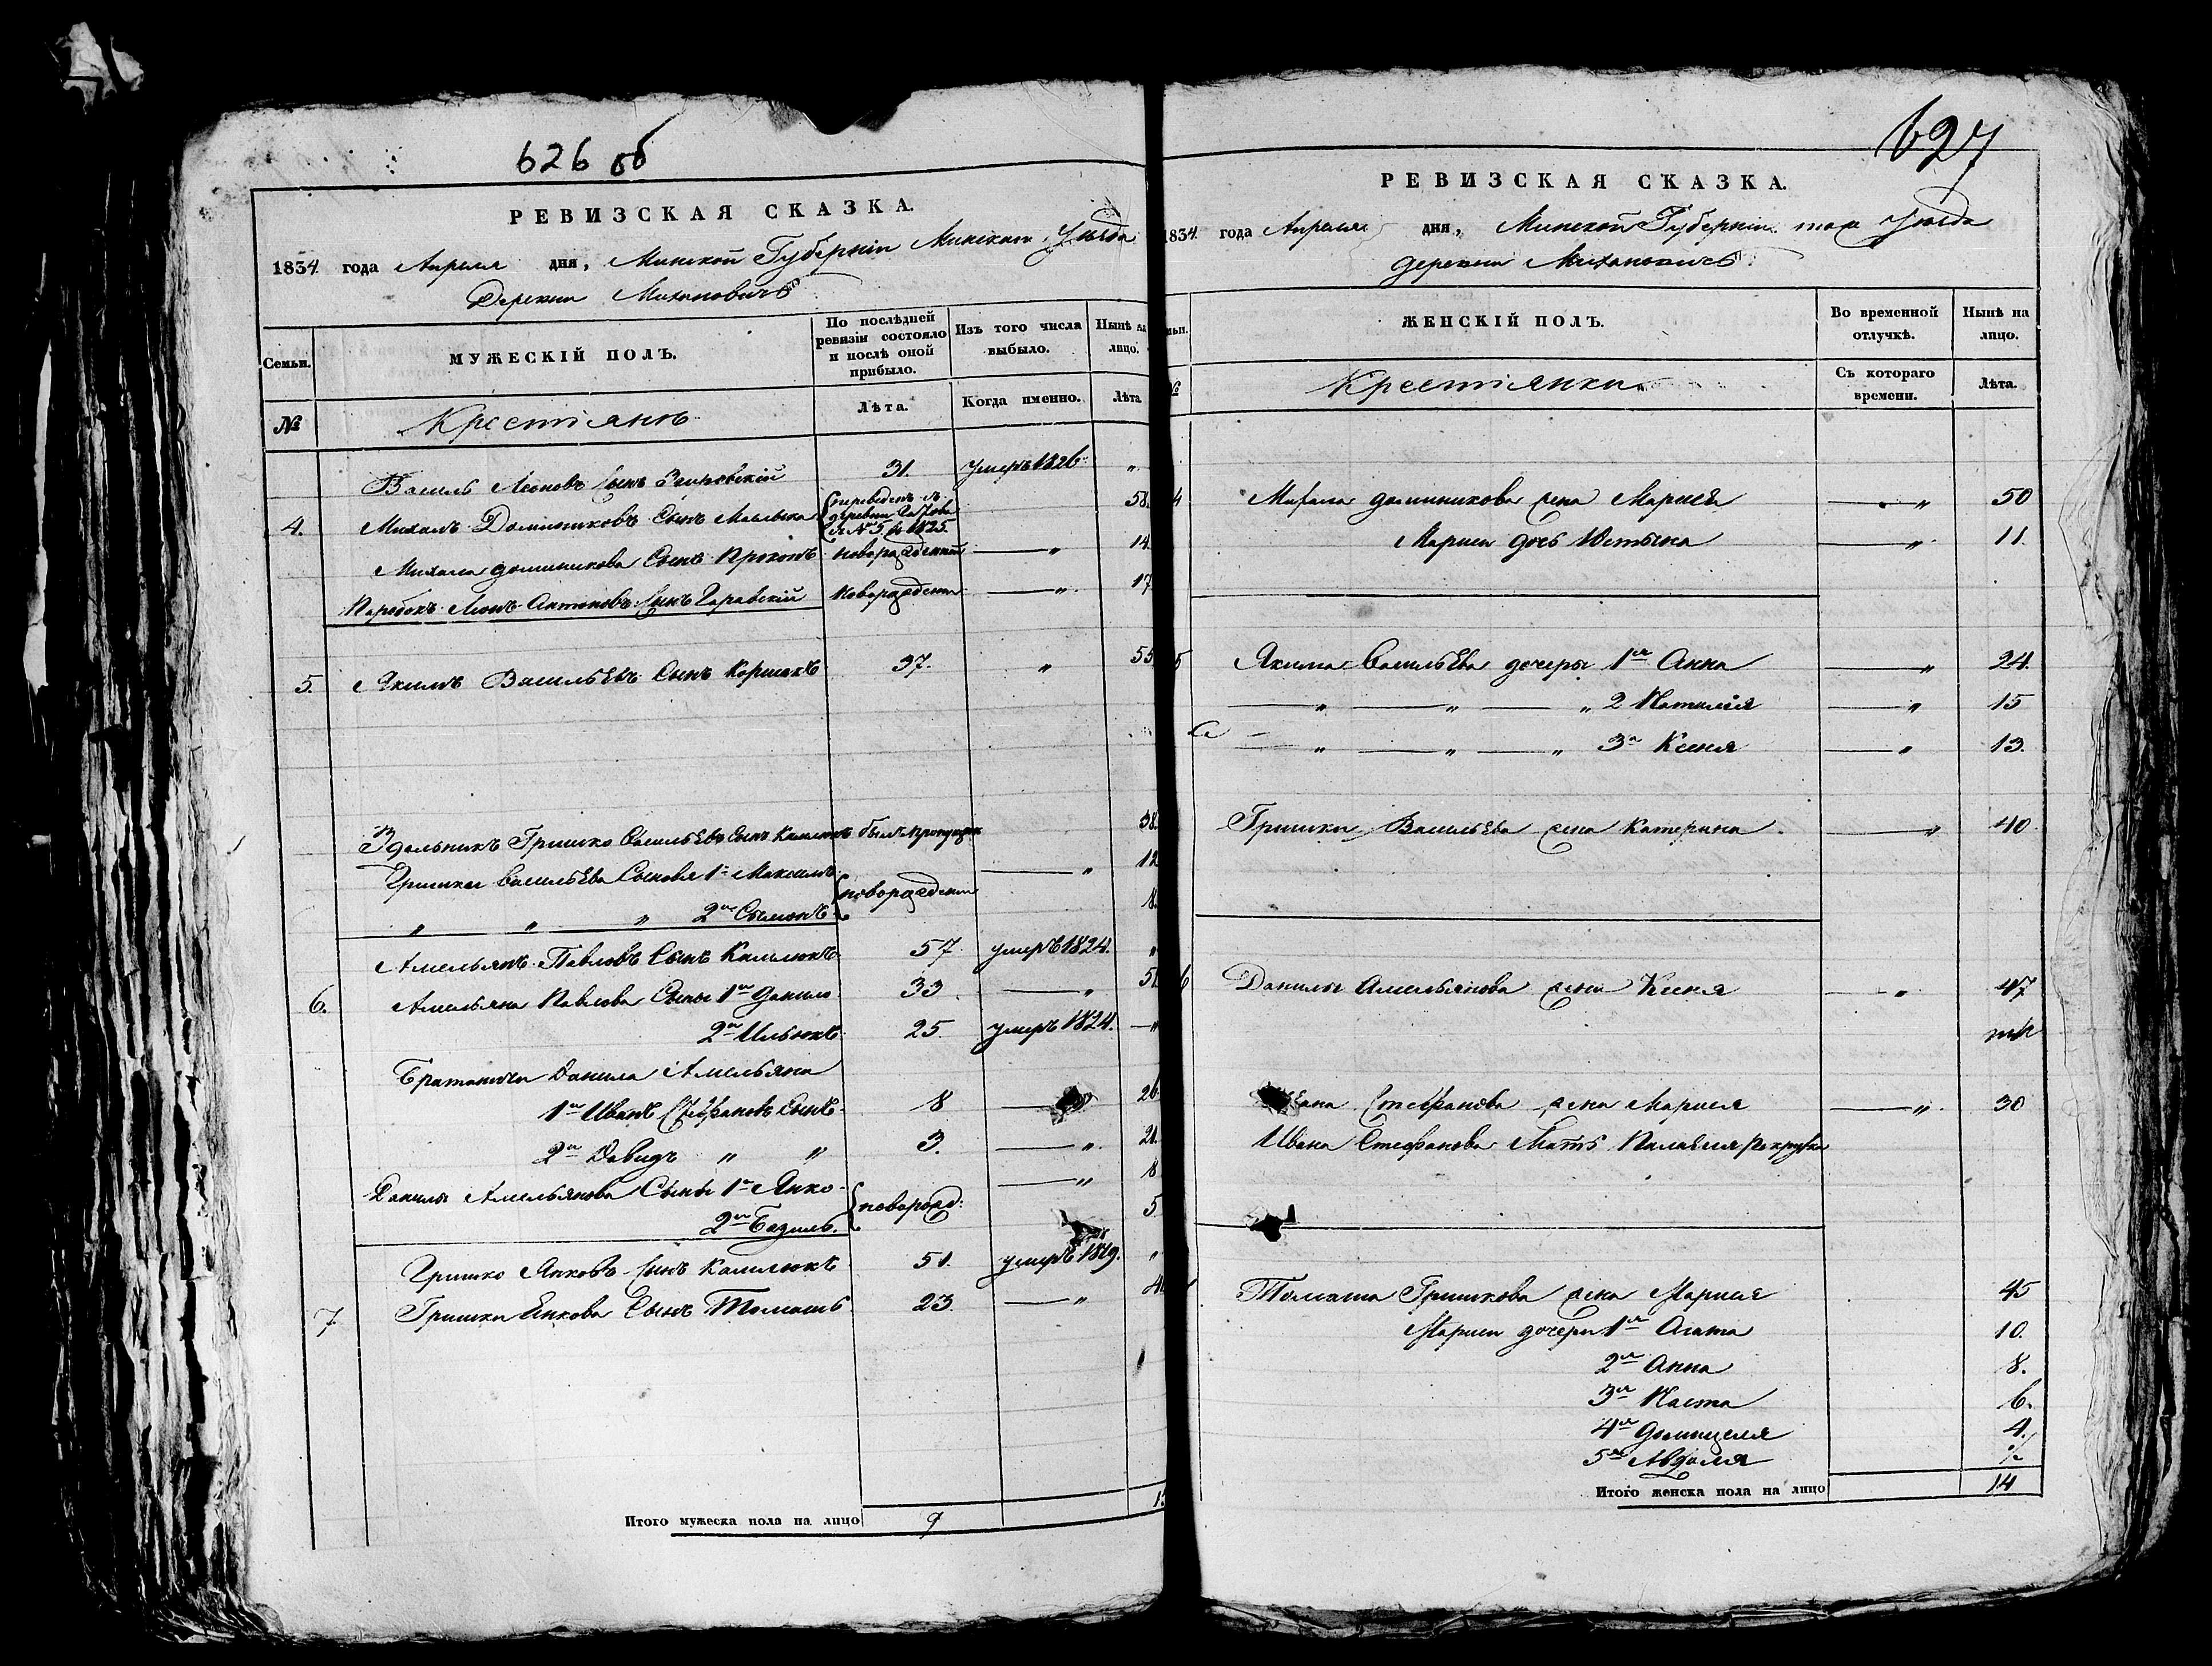 626 об
РЕВИЗСКАЯ СКАЗКА.
1834 года Апреля дня, Минской Губерніи Минскаго Уезда
Деревни Михановичъ
Семьи.
МУЖЕСКІЙ ПОЛЪ.
По послѣдней ревизіи состояло и послѣ оной прибыло.
Изъ того числа выбыло.
Нынѣ на лицо.
№
Крестьянъ
Лѣта.
Когда именно.
Лѣта
Василь Леоновъ Сынъ 31. умеръ 1826 „
4. Михалъ Доминиковъ Сынъ деревни № 5 1825 58.
Михала доминикова Сынъ Прокопъ новорожденный — „ 14
Паробокъ Антоновъ Сынъ новорожден — „ 17
5. Якимъ Васильевъ Сынъ Коршакъ 37. „ 55
Гришко Васильевъ Сынъ былъ 38.
Гришки Васильева Сыновя 1й Максимъ новорожденн — „ 12
„ „ „ 2й Сымонъ 8.
Амельянъ Павловъ Сынъ Камлюкъ 57 умеръ 1824. „
6. Амельяна Павлова Сыны 1й Данило 33 — „ 51
2й Ильюкъ 25 умеръ 1824. — „
Братаничи Данила Амельяна
1й Иванъ Стефановъ Сынъ 8 — 26
2й Давидъ „ „ 3. — „ 21.
Данилы Амельянова Сыны 1й Янко новорожд: — „ 8
2й Базиль. 5
Гришко Янковъ Сынъ Камлюкъ 51. умеръ 1819. „
7 Гришки Янкова Сынъ Томашъ 23. — „
Итого мужеска пола на лицо 9
627
РЕВИЗСКАЯ СКАЗКА.
1834 года Апреля дня, Минской Губерніи того Уезда
деревни Михановичъ
ЖЕНСКІЙ ПОЛЪ.
Во временной отлучкѣ.
Нынѣ на лицо.
№
Крестьянки
Съ котораго времени.
Лѣта.
4 Михала доминикова жена Марися — „ 50
Мариси дочь Юстына — „ 11.
5 Якима Васильева дочеры 1я Анна — „ 24.
— „ — „ — „ 2 Наталія — „ 15
— „ — „ — „ 3я Ксеня — „ 13.
Гришки Васильева жена Катерина — „ 40
6 Данилы Амельянова жена Ксеня — „ 47
Ивана Стефанова жена Марися — „ 30
Ивана Стефанова Мать Палагея рекрутка
Томаша Гришкова жена Марися 45
Мариси дочери 1я Агата 10.
2я Анна 8.
3я Наста 6.
4я Доминцеля 4.
5я Авдоля
Итого женска пола на лицо 14